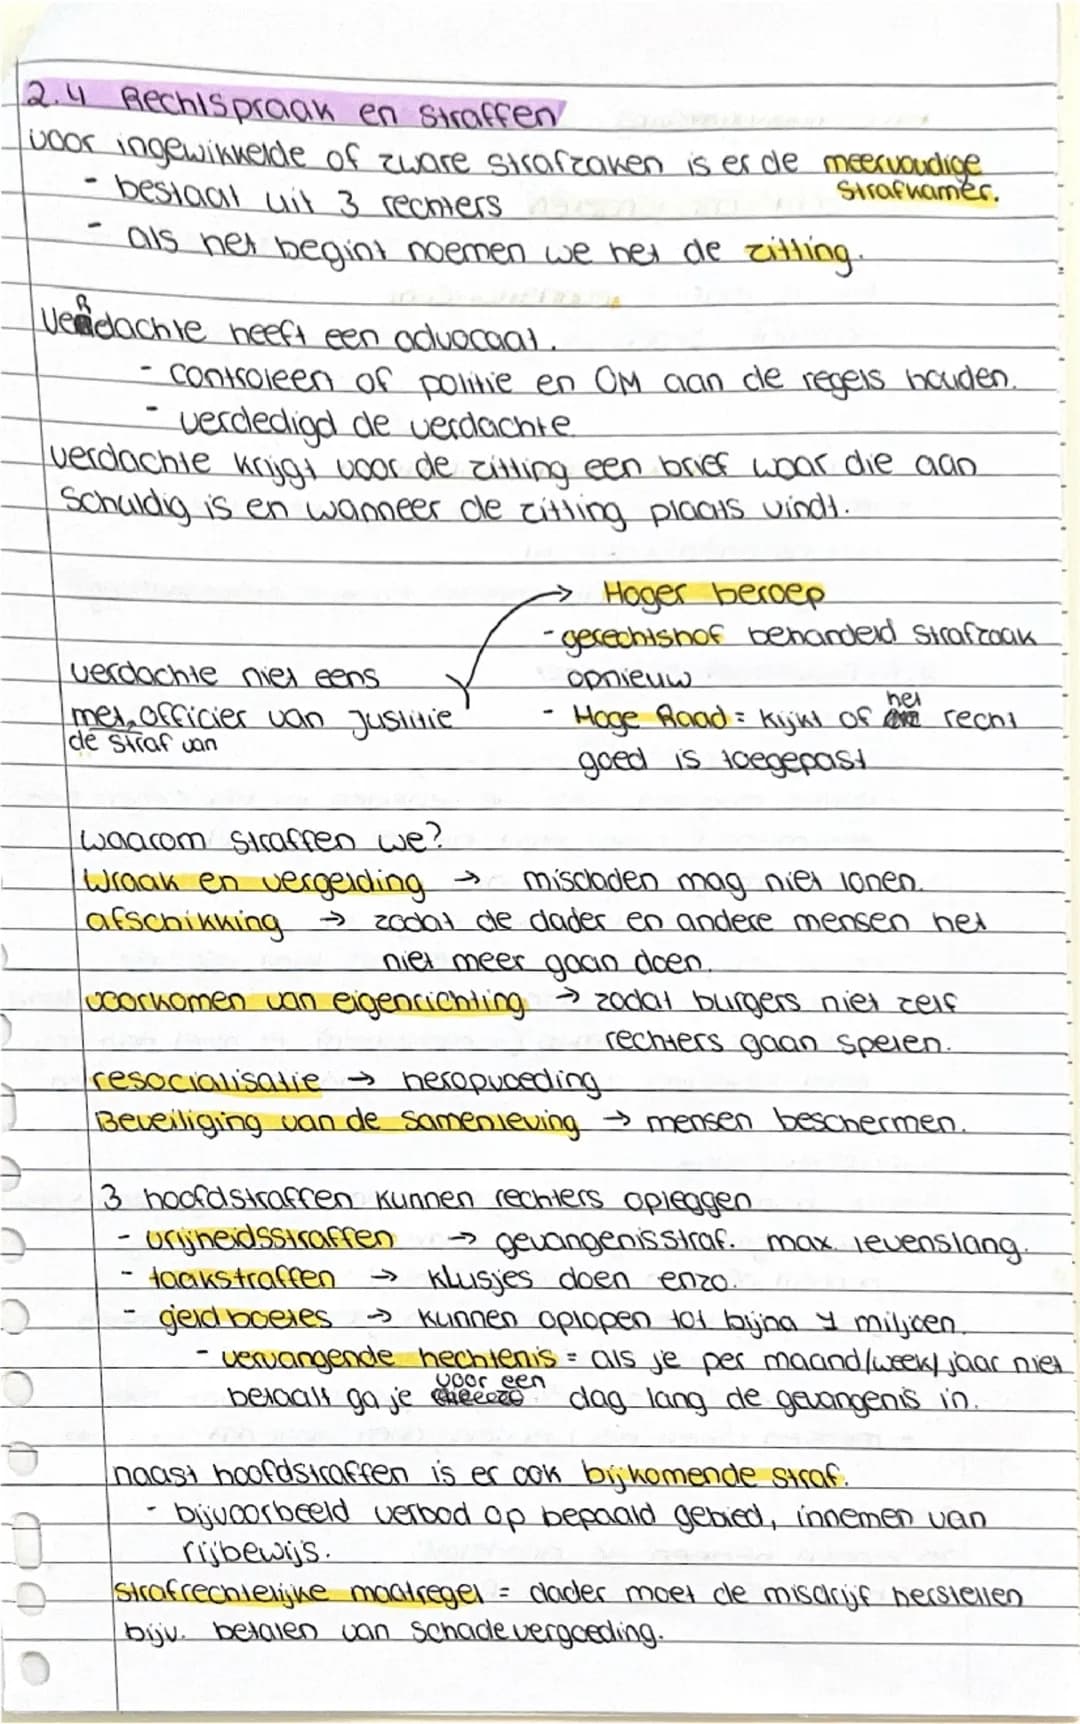 2.4 Rechtspraak en straffen
voor ingewikkelde of zware strafzaken is er de meervoudige
strafkamer.
- bestaat uit 3 rechters
- als het begint noemen we het de zitting.
Verdachte heeft een advocaat.
- controleen of politie en OM aan de regels houden.
- verdedigd de verdachte
verdachte krijgt voor de zitting een brief waar die aan
Schuldig is en wanneer de zitting plaats vindt.
→ Hoger beroep
- gerechtshof behandeld strafzaak
opnieuw
- Hoge Raad = kijkt of het recht
goed is toegepast
verdachte niet eens
met de straf van officier van justitie
waarom straffen we?
wraak en vergelding → misdaden mag niet lonen.
afschikking → zodat de dader en andere mensen het
niet meer gaan doen.
voorkomen van eigenrichting → zodat burgers niet zelf
rechters gaan spelen.
resocialisatie → heropvoeding
Beveiliging van de samenleving → mensen beschermen.
3 hoofdstraffen kunnen rechters opleggen
- vrijheidsstraffen → gevangenisstraf. max. levenslang.
- taakstraffen → klusjes doen enzo.
- geldboetes → kunnen oplopen tot bijna 1 miljoen.
- vervangende hechtenis = als je per maand/week/jaar niet
betaalt ga je voor een dag lang de gevangenis in.
naast hoofdstraffen is er ook bijkomende straf.
- bijvoorbeeld verbod op bepaald gebied, innemen van
rijbewijs.
Strafrechtelijke maatregel = dader moet de misdrijf herstellen
bijv. betalen van schadevergoeding.